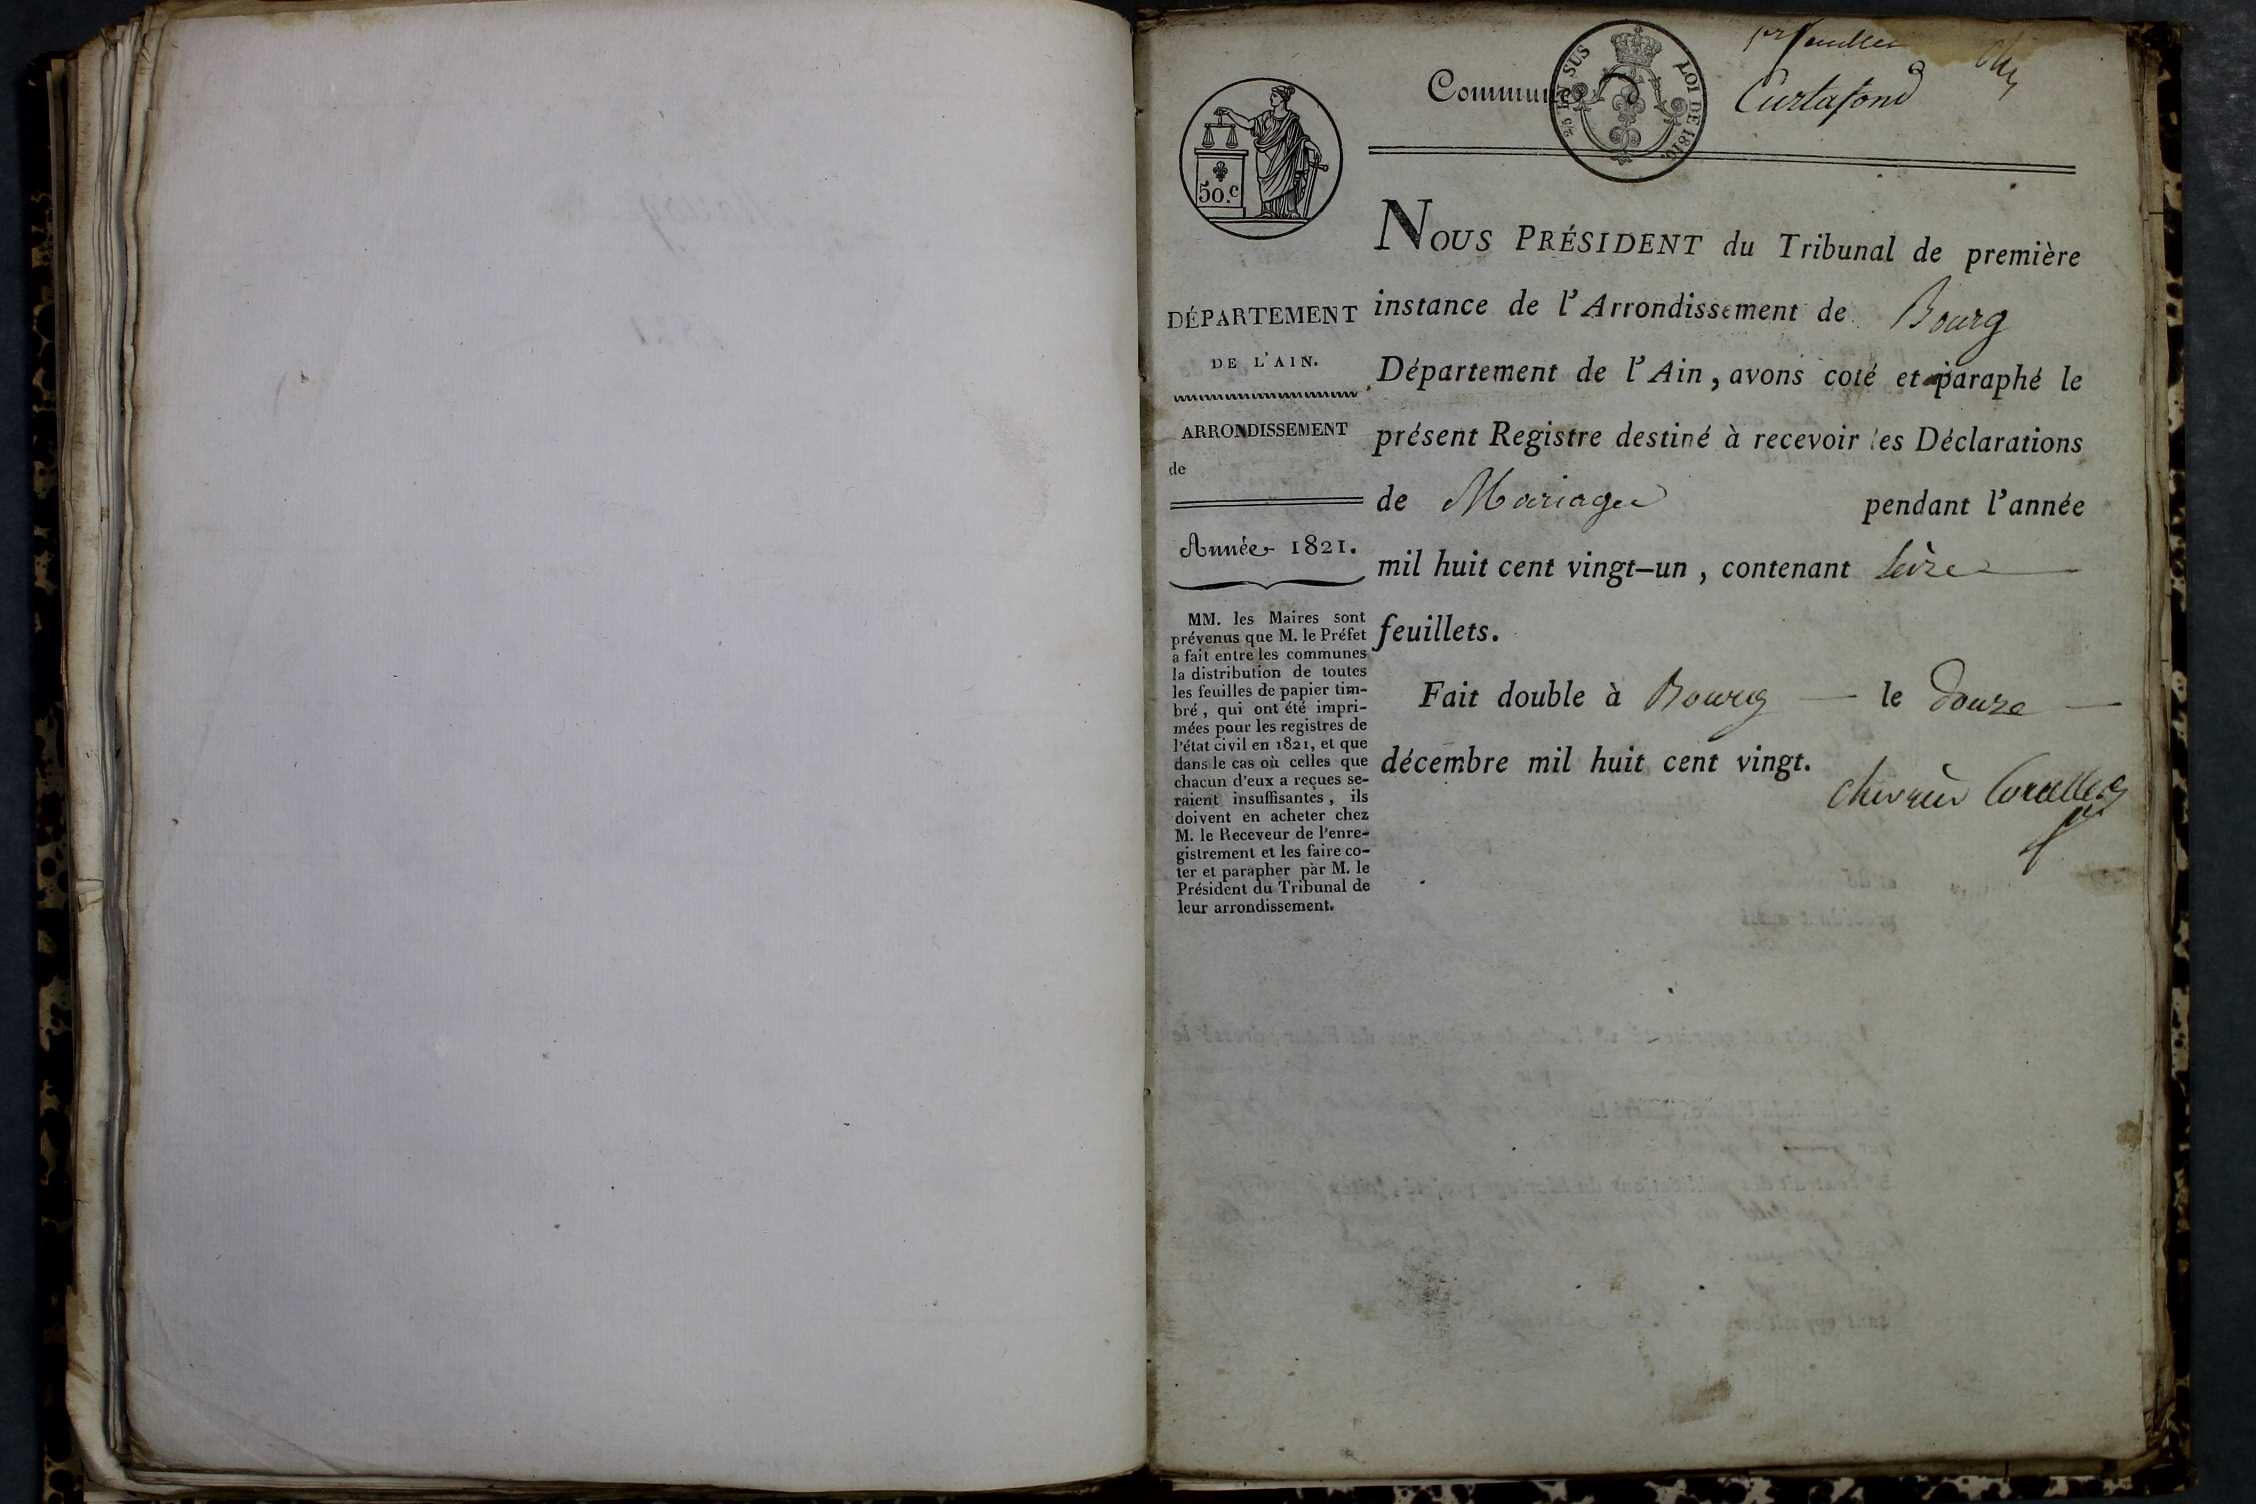 1er feuillet
Commune de Curtafond
25 EN SUS LOI DE 1816.
50.c
NOUS PRÉSIDENT du Tribunal de première
instance de l'Arrondissement de Bourg
Département de l'Ain, avons coté et paraphé le
présent Registre destiné à recevoir les Déclarations
de Mariages pendant l'année
mil huit cent vingt-un, contenant seize
feuillets.
Fait double à Bourg le douze
décembre mil huit cent vingt.
chevrier Corcelles
DÉPARTEMENT
DE L'AIN.
ARRONDISSEMENT
de
Année 1821.
MM. les Maires sont
prévenus que M. le Préfet
a fait entre les communes
la distribution de toutes
les feuilles de papier tim-
bré, qui ont été impri-
mées pour les registres de
l'état civil en 1821, et que
dans le cas où celles que
chacun d'eux a reçues se-
raient insuffisantes, ils
doivent en acheter chez
M. le Receveur de l'enre-
gistrement et les faire co-
ter et parapher par M. le
Président du Tribunal de
leur arrondissement.